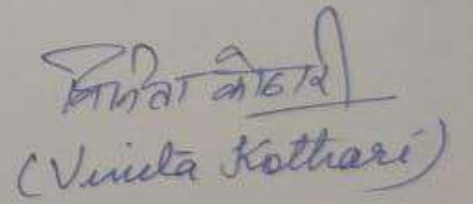 विनीता कोठारी
(Vinita Kothari)